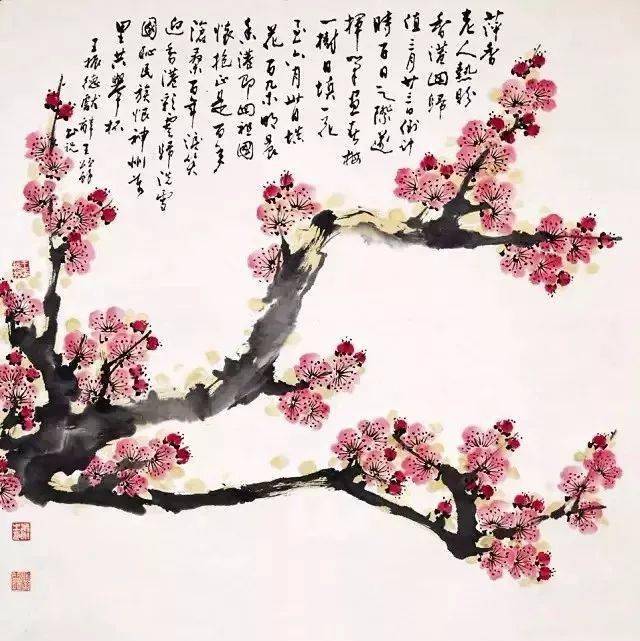 老人熱盼
香港回歸
值三月廿三日倒計
時百日之際遂
揮筆畫梅
一樹日填一花
至六月卅日填
花百朵明晨
香港即回祖國
懷抱正是百年
滄桑百年笑
迎香港彩雲歸洗雪
國恥民族恨神州萬
里共舉杯
王振德獻辭王